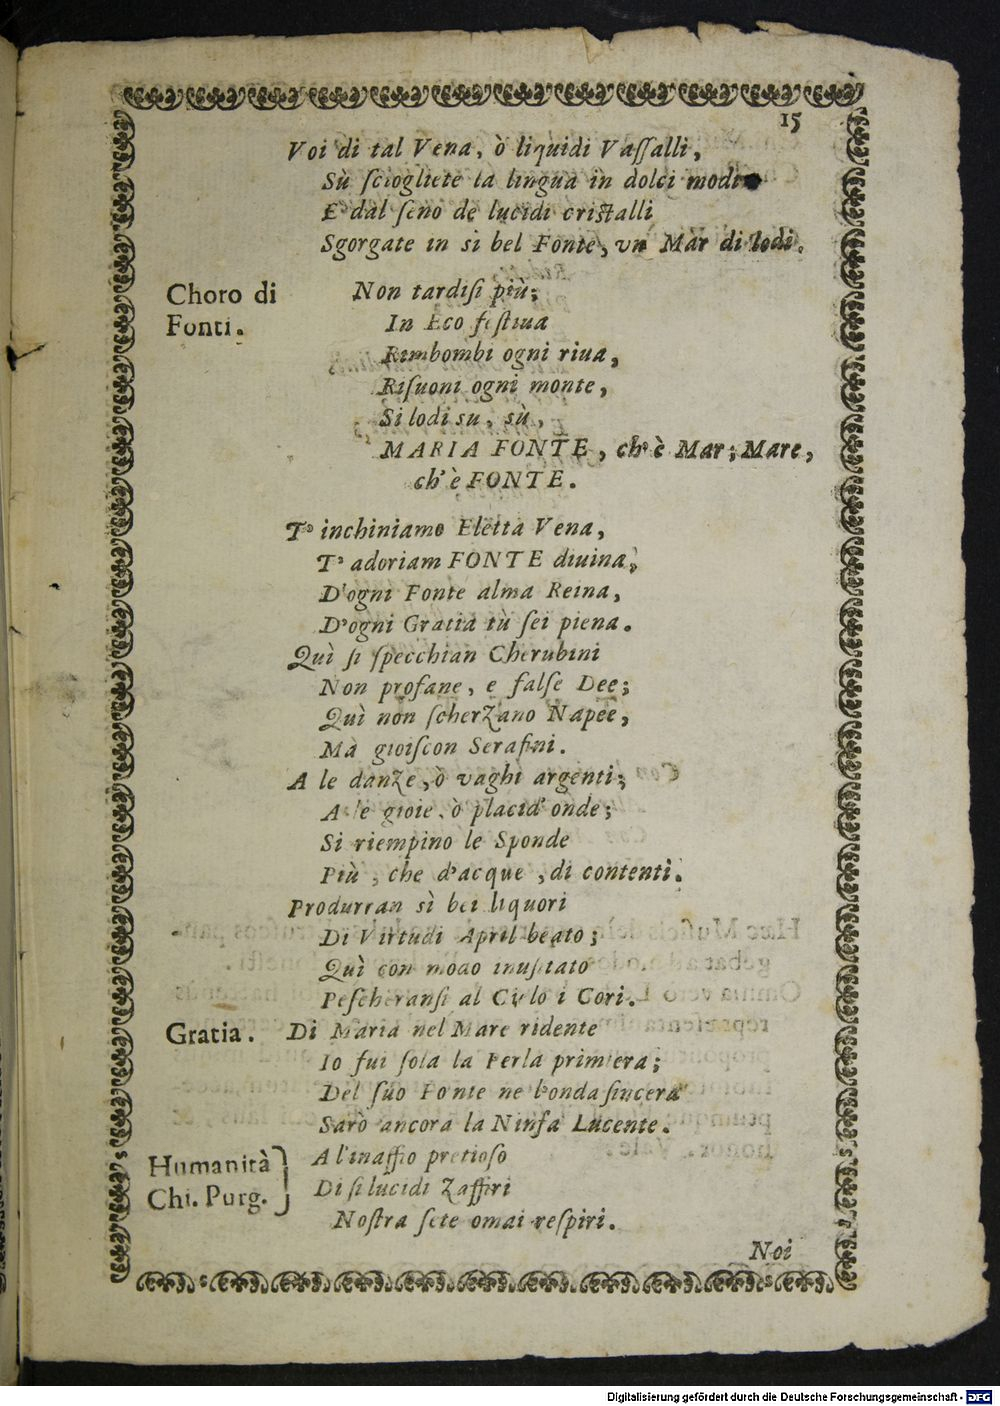 15
Voi di tal Vena, ò liquidi Vaſſalli,
Sù ſciogliete la lingua in dolci modi
E dal ſeno de lucidi criſtalli
Sgorgate in si bel Fonte, vn Mar di lodi.
Choro di Fonti.
Non tardiſi più;
In Eco feſtiua
Rimbombi ogni riua,
Riſuoni ogni monte,
Si lodi su, sù,
MARIA FONTE, ch'è Mar; Mare,
ch'è FONTE.
T' inchiniamo Eletta Vena,
T' adoriam FONTE diuina,
D'ogni Fonte alma Reina,
D'ogni Gratia tù ſei piena.
Quì ſi ſpecchian Cherubini
Non profane, e falſe Dee;
Quì non ſcherZano Napee,
Mà gioiſcon Serafini.
A le danZe, ò vaghi argenti;
A le gioie, ò placid' onde;
Si riempino le Sponde
Più, che d'acque, di contenti.
Produrran sì bei liquori
Di Virtudi April beato;
Quì con modo inuſitato
Peſcheranſi al Cielo i Cori.
Gratia. Di Maria nel Mare ridente
Io fui ſola la Perla primiera;
Del ſuo Fonte ne l'onda ſincera
Sarò ancora la Ninfa Lucente.
Humanità
Chi. Purg.
A l'inaffio pretioſo
Di ſi lucidi Zaffiri
Noſtra ſete omai reſpiri.
Noi
Digitalisierung gefördert durch die Deutsche Forschungsgemeinschaft - DFG